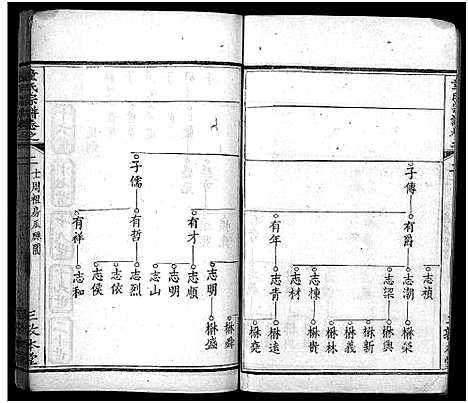 子傳
有爵
有年
志禎
志潮
志梁
志棟
志材
志青
楙榮
楙興
楙新
楙義
楙林
楙貴
楙遠
楙堯
子儒
有才
有哲
有祥
志明
志順
志明
志山
志烈
志依
志侯
志和
楙舜
楙盛
氏宗譜卷之
二士周祖房辰興圖
三敦本堂